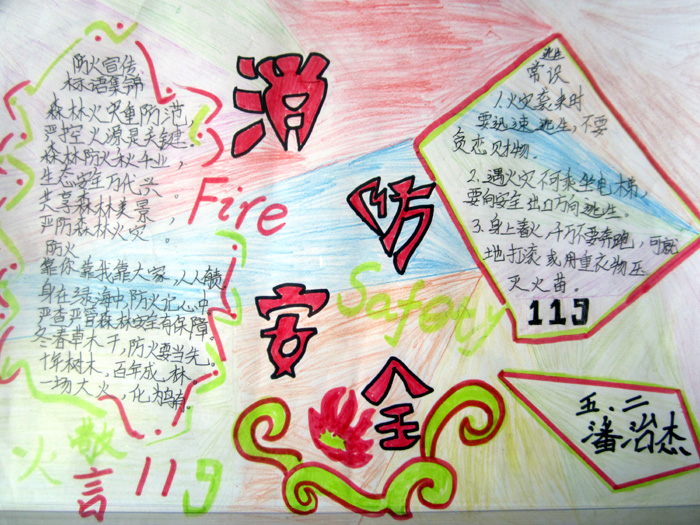 防火宣传
标语集锦
森林火灾重防范，
严控火源是关键。
森林防火秋千业，
生态安全万代兴。
共享森林美景，
严防森林火灾。
防火
靠你靠我靠大家，人人锁
身在绿海中，防火记心中
严查严管森林安全有保障。
冬春草木干，防火要当先。
十年树木，百年成林。
一场大火，化为乌有。
火警言119
消防安全
Fire
Safety
逃生
常识
1.火灾袭来时
要迅速逃生，不要
贪恋财物。
2.遇火灾不可乘坐电梯，
要向安全出口方向逃生。
3.身上着火，千万不要奔跑，可就
地打滚或用重衣物压
灭火苗。
119
五.二
潘治杰